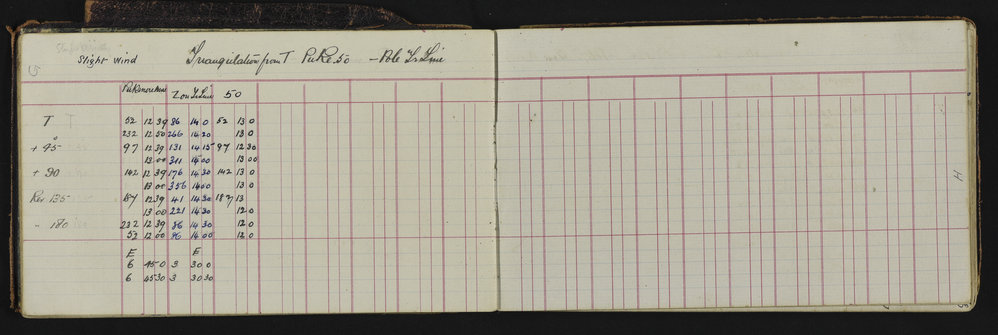 Slight wind Triangulation from T Puke 50 – Pole Tr Line
Z on Tr Line 50
T 52 12 39 86 14 0 52 13 0
232 12 50 266 14 20 13 0
+ 45 97 12 39 131 14 15 97 12 30
13 00 311 15 00 13 00
+ 90 142 12 39 176 14 30 142 13 0
13 00 356 14 00 13 0
Rev 135 187 12 39 41 14 30 187 13
13 00 221 14 30 12 0
" 180 232 12 39 86 14 30 12 0
52 12 00 86 14 00 12 0
E E
6 45 0 3 30 0
6 45 30 3 30 30
H